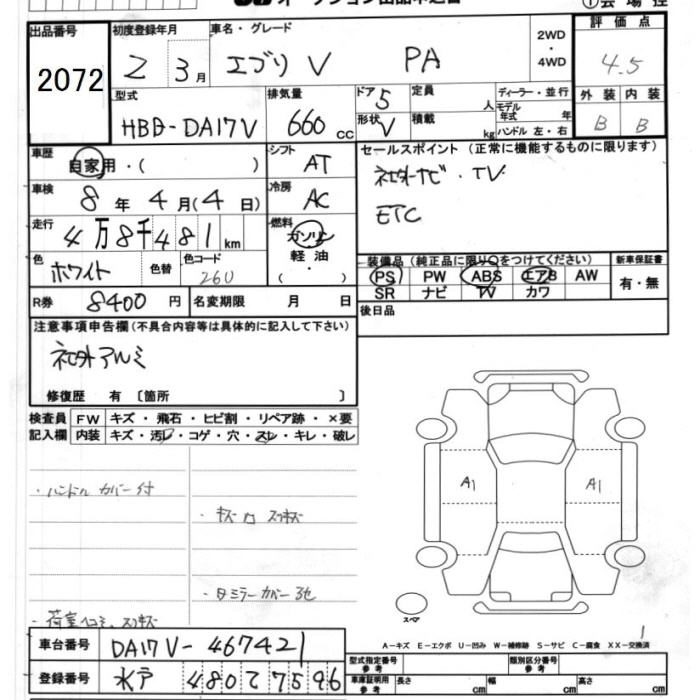 出品番号 初度登録年月 車名・グレード 2WD・4WD 評価点
2072 2 3月 エブリV PA 4.5
型式 排気量 ドア 5 定員 人 ディーラー・並行 外装 内装
HBD-DA17V 660cc 形状 V 積載 kg モデル年式 年 ハンドル 左・右 B B
車歴 自家用・( ) シフト AT セールスポイント (正常に機能するものに限ります)
車検 8年4月(4日) 冷房 AC 社外ナビ・TV
走行 4万8千481km 燃料 ガソリン ETC
色 ホワイト 色替 色コード 26U 軽油 ( ・ )
装備品(純正品に限り○をつけてください) 新車保証書
PS PW ABS エアB AW 有・無
SR ナビ TV カワ
R券 8400円 名変期限 月 日 後日品
注意事項申告欄(不具合内容等は具体的に記入して下さい)
社外アルミ
修復歴 有 〔箇所 〕
検査員 FW キズ・飛石・ヒビ割・リペア跡・×要
記入欄 内装 キズ・汚レ・コゲ・穴・スレ・キレ・破レ
・ハンドルカバー付
A1 A1
・キズ凹スリキズ
・日ミラーカバー
スペア
1
A-キズ E-エクボ U-凹み W-補修跡 S-サビ C-腐食 XX-交換済
車台番号 DA17V-467421
型式指定番号 参考 類別区分番号 参考
登録番号 水戸 480 て 7596
車庫証明記載 参考 長さ cm 幅 cm 高さ cm